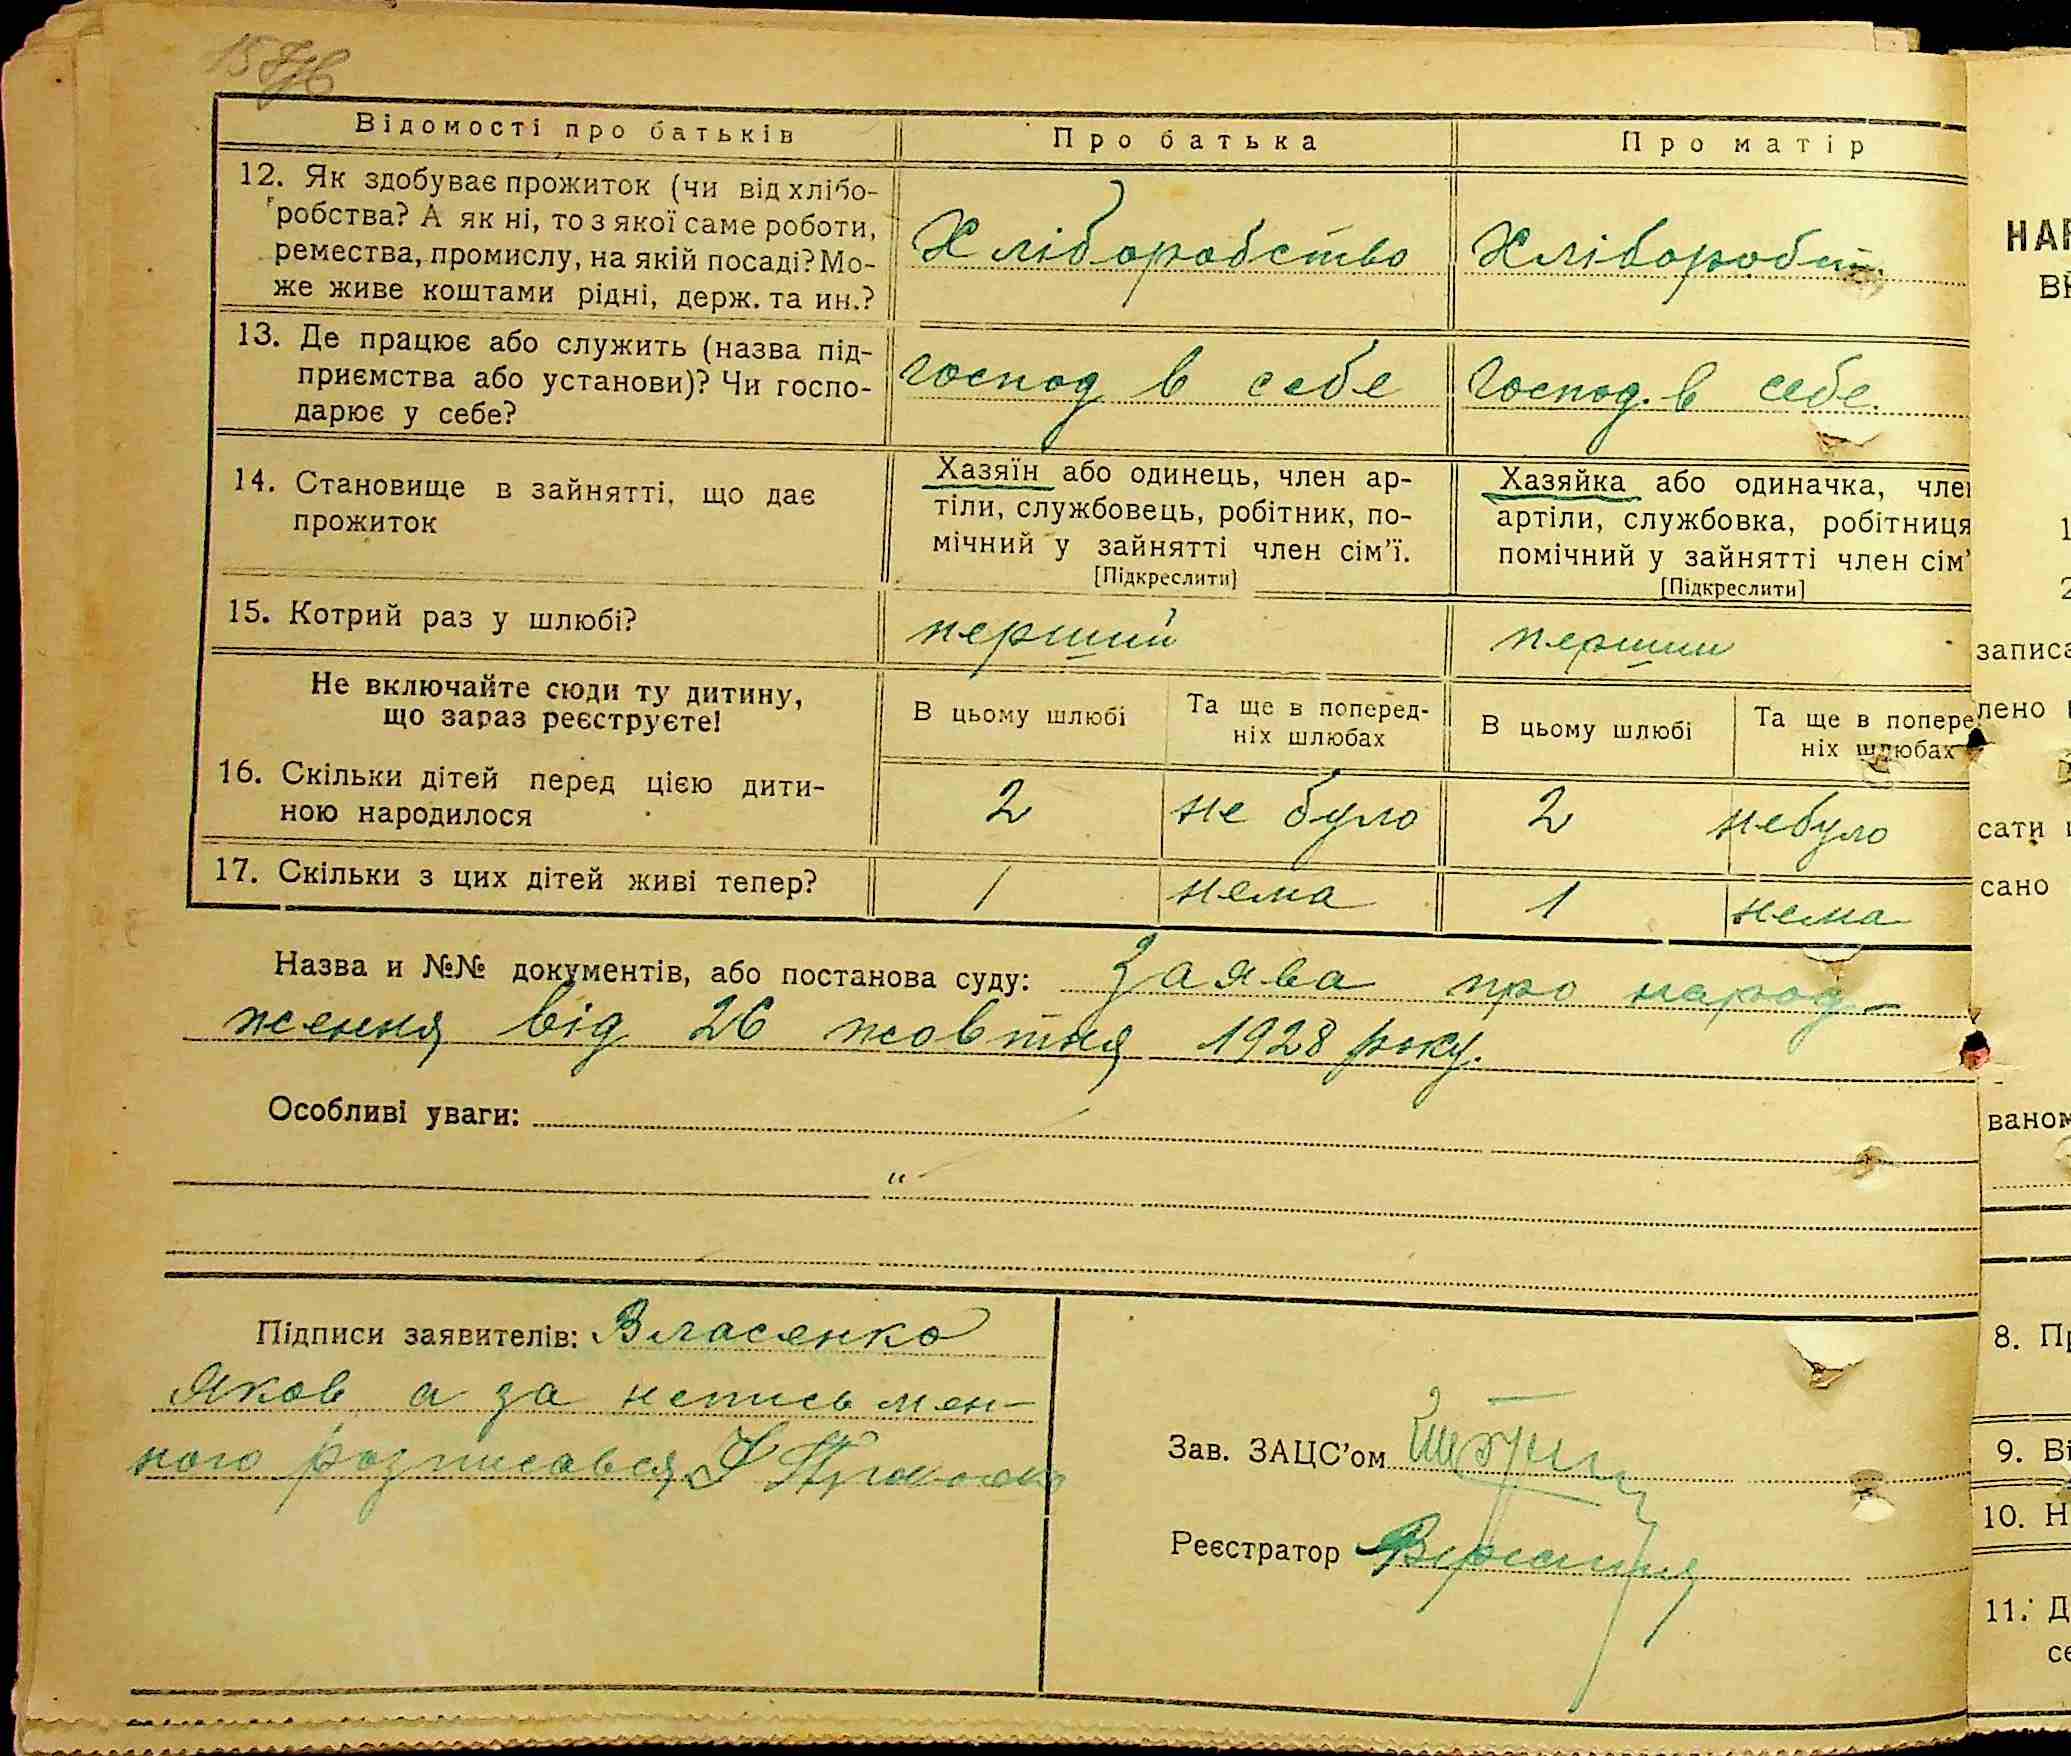 Відомості про батьків
Про батька
Про матір
12. Як здобуває прожиток (чи від хлібо-
робства? А як ні, то з якої саме роботи,
ремества, промислу, на якій посаді? Мо-
же живе коштами рідні, держ. та ин.?
Хліборобство
Хлібороб
13. Де працює або служить (назва під-
приємства або установи)? Чи госпо-
дарює у себе?
господ в себе
господ. в себе.
14. Становище в зайнятті, що дає
прожиток
Хазяїн або одинець, член ар-
тіли, службовець, робітник, по-
мічний у зайнятті член сім'ї.
[Підкреслити]
Хазяйка або одиначка, член
артіли, службовка, робітниця
помічний у зайнятті член сім'
[Підкреслити]
15. Котрий раз у шлюбі?
перший
перший
Не включайте сюди ту дитину,
що зараз реєструєте!
В цьому шлюбі
Та ще в поперед-
ніх шлюбах
В цьому шлюбі
Та ще в попере
ніх шлюбах
16. Скільки дітей перед цією дити-
ною народилося
2
не було
2
небуло
17. Скільки з цих дітей живі тепер?
1
нема
1
нема
Назва и №№ документів, або постанова суду: Заява про народ-
ження від 26 жовтня 1928 року.
Особливі уваги:
"
Підписи заявителів: Власенко
Яков а за неписьмен-
ного розписався
Зав. ЗАЦС'ом
Реєстратор
НАР
1
2
записа
лено
сати
сано
ваном
8. Пр
9. Ві
10. Н
11. Д
се